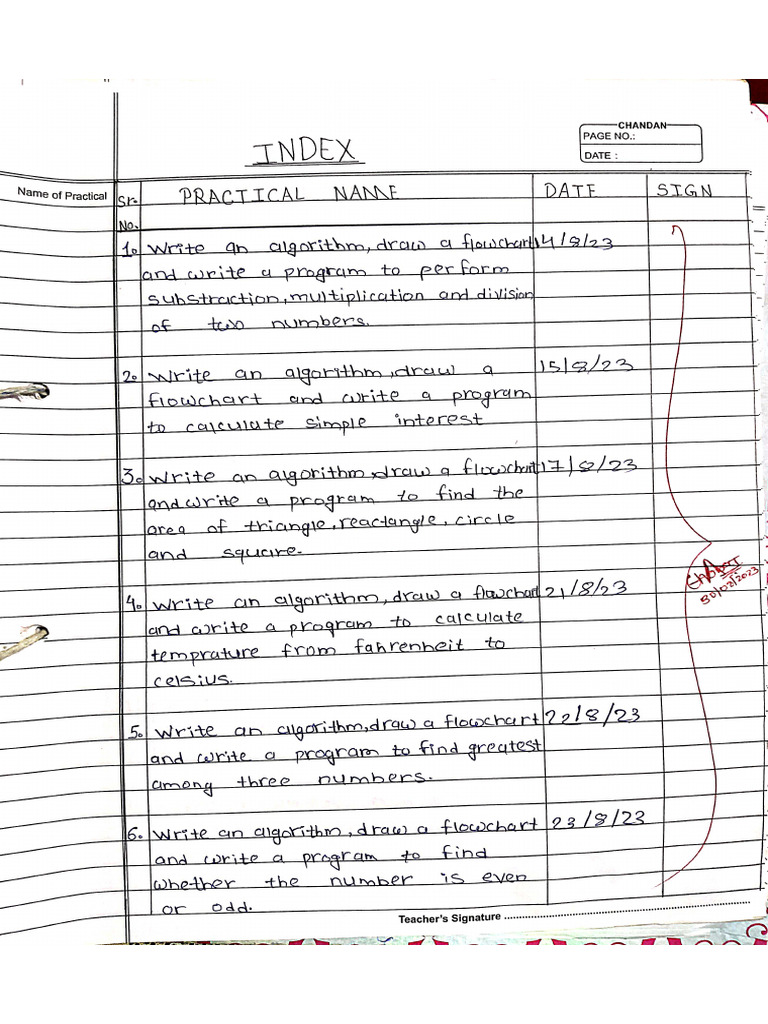 CHANDAN
PAGE NO.:
DATE :
INDEX
Name of Practical
Sr. No. PRACTICAL NAME DATE SIGN
1. Write an algorithm, draw a flowchart 14/8/23
and write a program to perform
substraction, multiplication and division
of two numbers.
2. Write an algorithm, draw a 15/8/23
flowchart and write a program
to calculate simple interest
3. Write an algorithm, draw a flowchart 17/8/23
and write a program to find the
area of triangle, reactangle, circle
and square.
4. Write an algorithm, draw a flowchart 21/8/23
and write a program to calculate
temprature from fahrenheit to
celsius.
5. Write an algorithm, draw a flowchart 22/8/23
and write a program to find greatest
among three numbers.
6. Write an algorithm, draw a flowchart 23/8/23
and write a program to find
whether the number is even
or odd.
Teacher's Signature